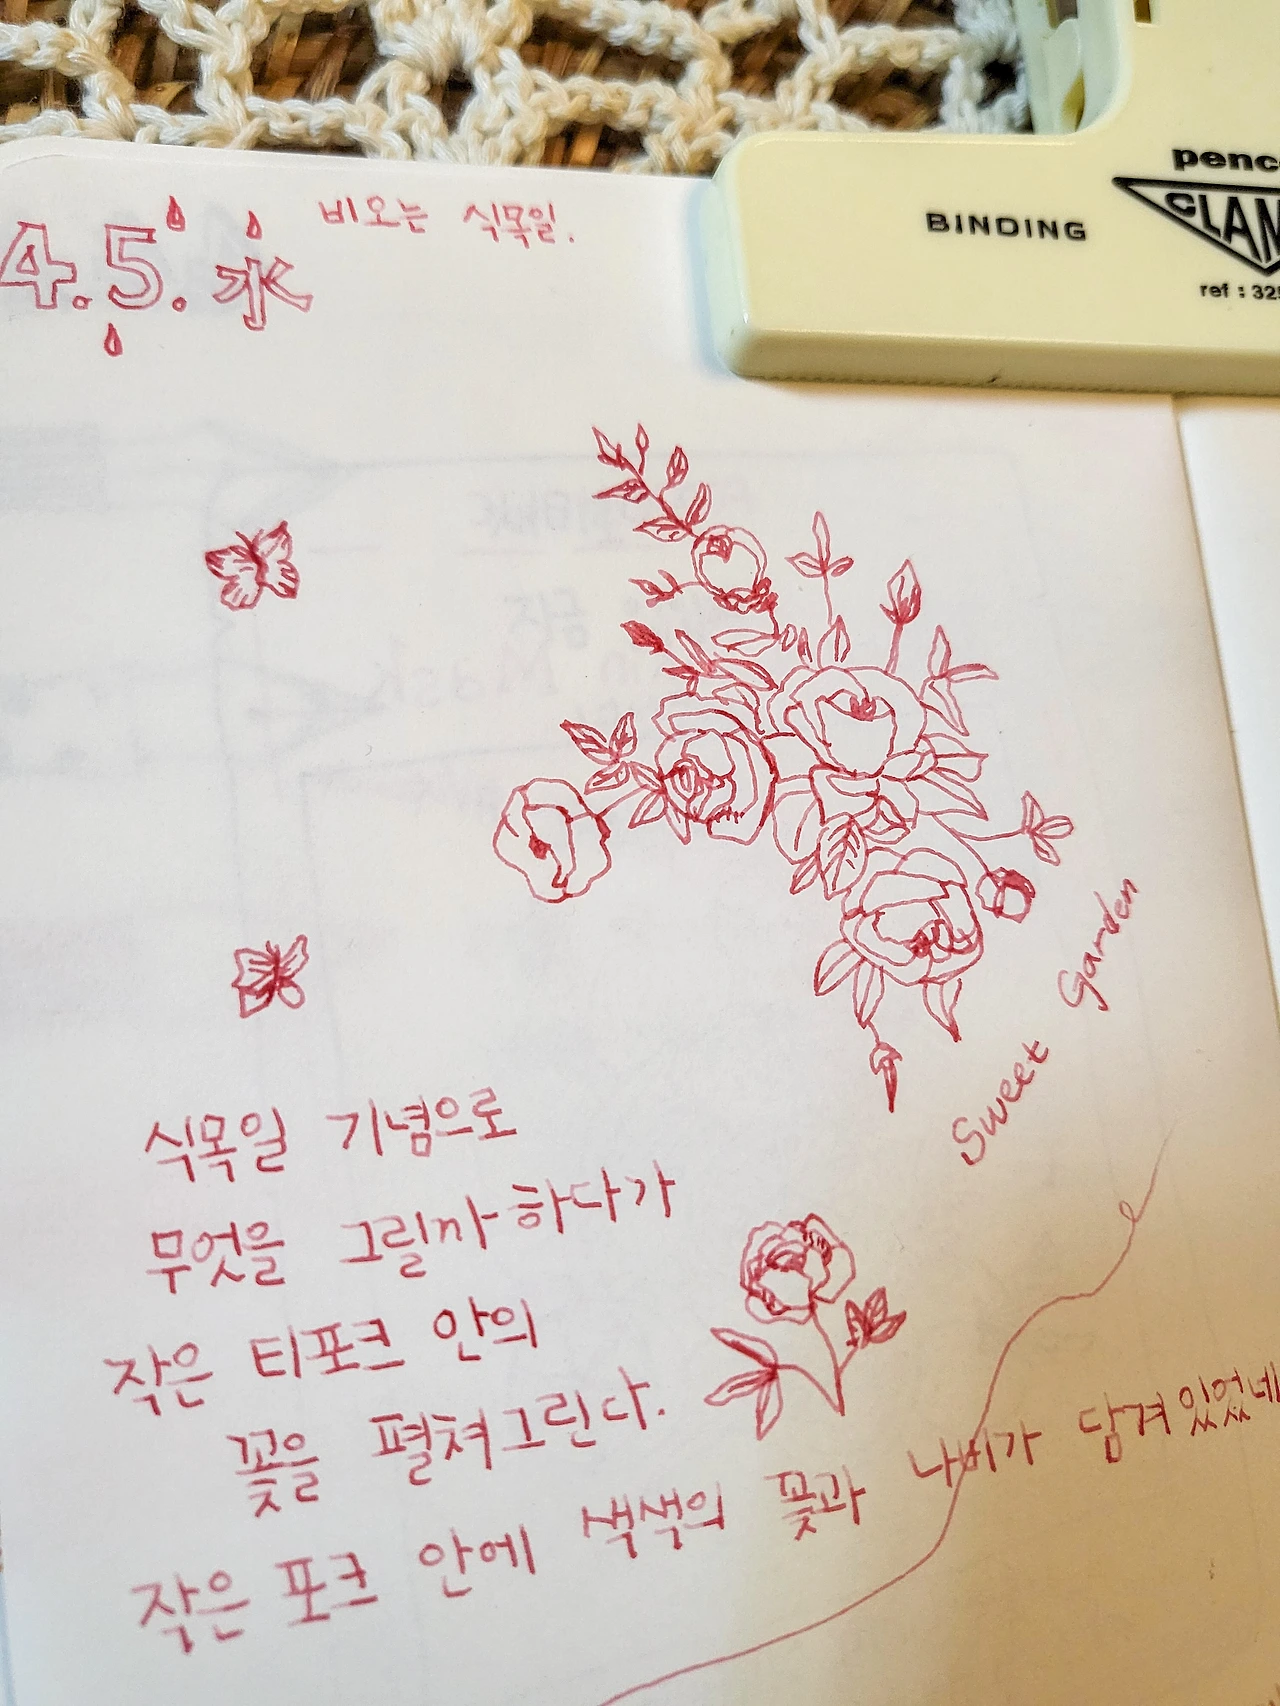 4.5. 水
비오는 식목일.
BINDING
penc
CLAM
ref : 325
Sweet Garden
식목일 기념으로
무엇을 그릴까 하다가
작은 티포크 안의
꽃을 펼쳐그린다.
작은 포크 안에 색색의 꽃과 나비가 담겨있었네